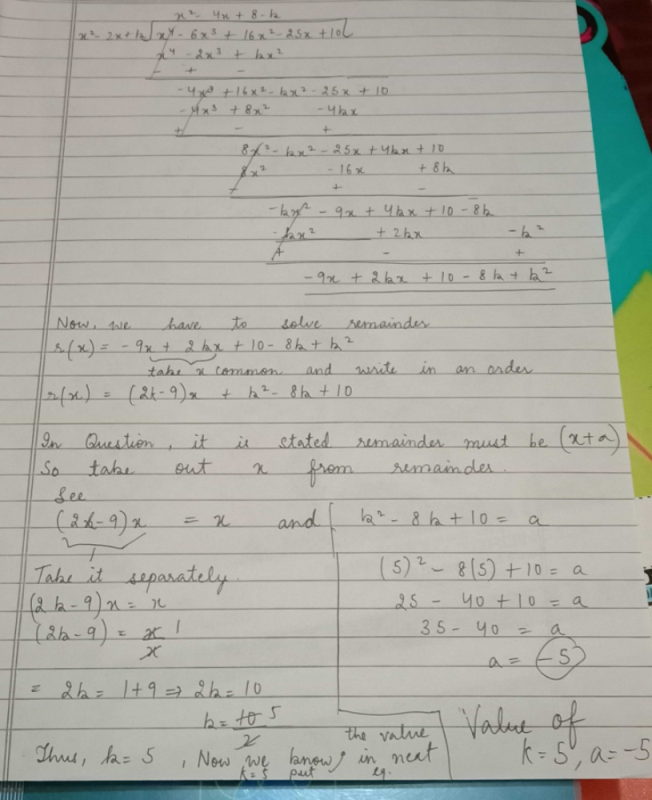 x² - 4x + 8 - k
x² - 2x + k ) x⁴ - 6x³ + 16x² - 25x + 10
x⁴ - 2x³ + kx²
- + -
-4x³ + 16x² - kx² - 25x + 10
-4x³ + 8x² - 4kx
+ - +
8x² - kx² - 25x + 4kx + 10
8x² - 16x + 8k
- + -
-kx² - 9x + 4kx + 10 - 8k
-kx² + 2kx - k²
+ - +
-9x + 2kx + 10 - 8k + k²
Now, we have to solve remainder
r(x) = -9x + 2kx + 10 - 8k + k²
take x common and write in an order
r(x) = (2k-9)x + k² - 8k + 10
In Question, it is stated remainder must be (x+a)
So take out x from remainder.
See
(2k-9)x = x and k² - 8k + 10 = a
Take it separately.
(2k-9)x = x
(2k-9) = x/x 1
= 2k = 1+9 ⇒ 2k = 10
k = 10/2 5
Thus, k = 5, Now we know k=5 put the value in next eq.
(5)² - 8(5) + 10 = a
25 - 40 + 10 = a
35 - 40 = a
a = -5
Value of
k = 5, a = -5